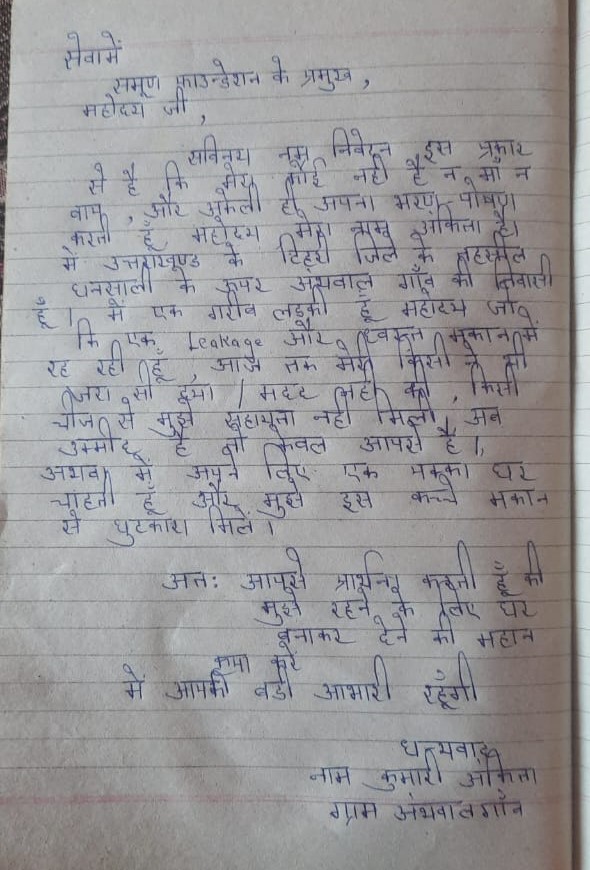 सेवामें
समूण फ़ाउन्डेशन के प्रमुख,
महोदय जी,
सविनय नम्र निवेदन इस प्रकार
से है कि मेरा कोई नही है न माँ न
बाप, और अकेली ही अपना भरण-पोषण
करती हूँ महोदय मेरा नाम अंकिता है।
में उत्तराखण्ड के टिहरी जिले के तहसील
घनसाली के ऊपर अंथवाल गाँव की निवासी
हूँ। में एक गरीब लड़की हूँ महोदय जी
कि एक Leakage और ध्वस्त मकान में
रह रही हूँ, आज तक मेरी किसी ने भी
जरा सी दया / मदद नही की, किसी
चीज से मुझे सहायता नही मिली, अब
उम्मीद है तो केवल आपसे है।,
अथवा में अपने लिए एक पक्का घर
चाहती हूँ और मुझे इस कच्चे मकान
से छुटकारा मिले।
अतः आपसे प्रार्थना करती हूँ की
मुझे रहने के लिए घर
बनाकर देने की महान
कृपा करे
में आपकी बडी आभारी रहूँगी
धन्यवाद
नाम कुमारी अंकिता
ग्राम अंथवालगाँव